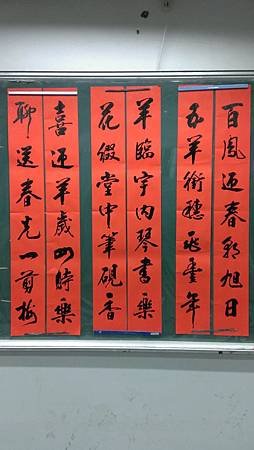 百鳳迎春朝旭日
五羊銜穗兆豐年
羊臨宇內琴書樂
花綴堂中筆硯香
喜迎羊歲四時樂
聊送春光一剪梅